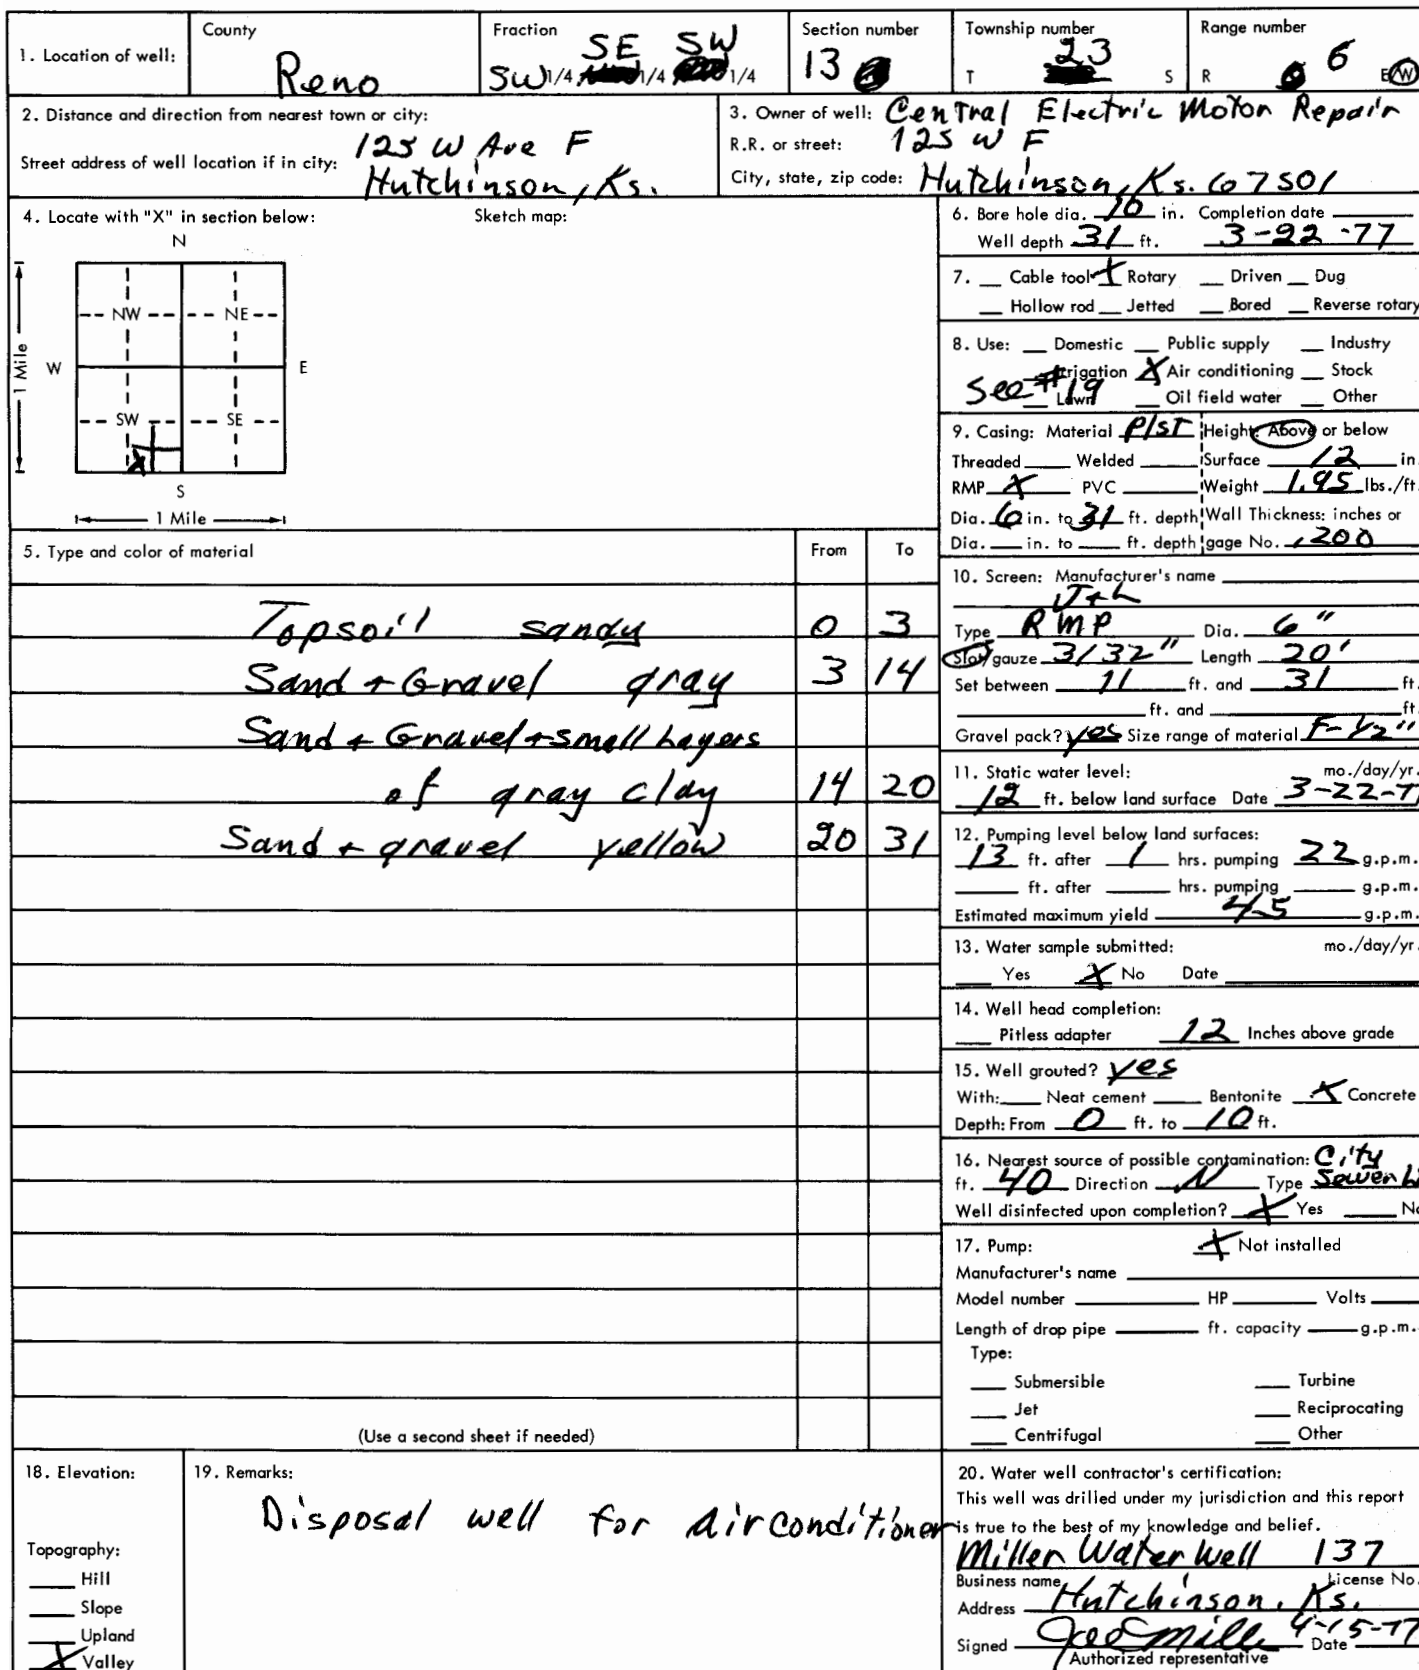 1. Location of well:
County
Reno
Fraction
SE SW
SW 1/4 1/4 1/4
Section number
13
Township number
23
T S
Range number
6
R E/W
2. Distance and direction from nearest town or city:
Street address of well location if in city:
125 W Ave F
Hutchinson, Ks.
3. Owner of well: Central Electric Motor Repair
R.R. or street: 125 W F
City, state, zip code: Hutchinson, Ks. 67501
4. Locate with "X" in section below:
Sketch map:
N
NW NE
W E
1 Mile
SW SE
X
S
1 Mile
5. Type and color of material From To
Topsoil sandy 0 3
Sand + Gravel gray 3 14
Sand + Gravel + small Layers
of gray clay 14 20
Sand + gravel yellow 20 31
(Use a second sheet if needed)
6. Bore hole dia. 10 in. Completion date
Well depth 31 ft. 3-22-77
7. __ Cable tool X Rotary __ Driven __ Dug
__ Hollow rod __ Jetted __ Bored __ Reverse rotary
8. Use: __ Domestic __ Public supply __ Industry
__ Irrigation X Air conditioning __ Stock
See #19
__ Lawn __ Oil field water __ Other
9. Casing: Material P/ST Height: Above or below
Threaded __ Welded __ Surface 12 in.
RMP X PVC __ Weight 1.95 lbs./ft.
Dia. 6 in. to 31 ft. depth Wall Thickness: inches or
Dia. __ in. to __ ft. depth gage No. .200
10. Screen: Manufacturer's name
J+L
Type RMP Dia. 6"
Slot/gauze 3/32" Length 20'
Set between 11 ft. and 31 ft.
__ ft. and __ ft.
Gravel pack? yes Size range of material F-1/2"
11. Static water level: mo./day/yr.
12 ft. below land surface Date 3-22-77
12. Pumping level below land surfaces:
13 ft. after 1 hrs. pumping 22 g.p.m.
__ ft. after __ hrs. pumping __ g.p.m.
Estimated maximum yield 45 g.p.m.
13. Water sample submitted: mo./day/yr.
__ Yes X No Date __
14. Well head completion:
__ Pitless adapter 12 Inches above grade
15. Well grouted? yes
With: __ Neat cement __ Bentonite X Concrete
Depth: From 0 ft. to 10 ft.
16. Nearest source of possible contamination: City
ft. 40 Direction N Type Sewer Li
Well disinfected upon completion? X Yes __ No
17. Pump: X Not installed
Manufacturer's name __
Model number __ HP __ Volts __
Length of drop pipe __ ft. capacity __ g.p.m.
Type:
__ Submersible __ Turbine
__ Jet __ Reciprocating
__ Centrifugal __ Other
18. Elevation:
Topography:
__ Hill
__ Slope
__ Upland
X Valley
19. Remarks:
Disposal well for airconditioner
20. Water well contractor's certification:
This well was drilled under my jurisdiction and this report
is true to the best of my knowledge and belief.
Miller Water Well 137
Business name License No.
Address Hutchinson, Ks.
Signed Joe Mille Date 4-15-77
Authorized representative